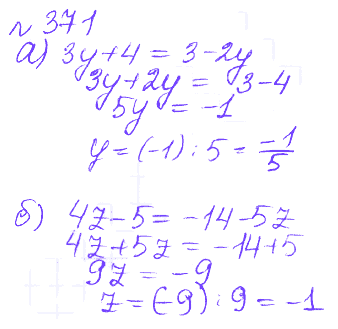 № 371
а) 3y+4 = 3-2y
3y+2y = 3-4
5y = -1
y = (-1) : 5 = -1/5
б) 4z-5 = -14-5z
4z+5z = -14+5
9z = -9
z = (-9) : 9 = -1